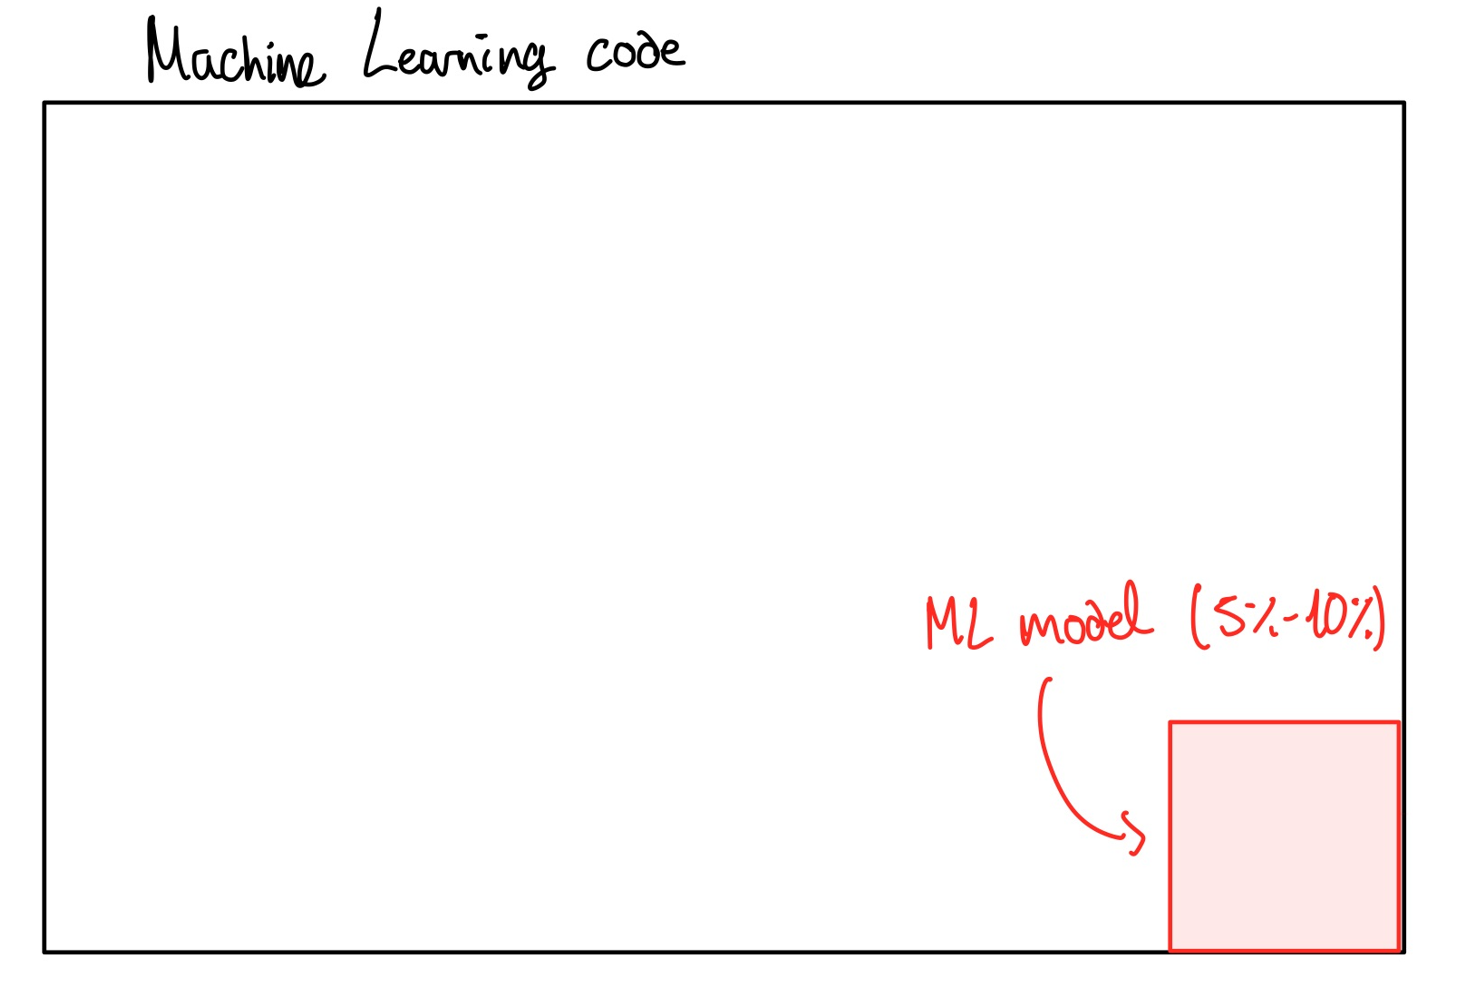 Machine Learning code
ML model (5%-10%)